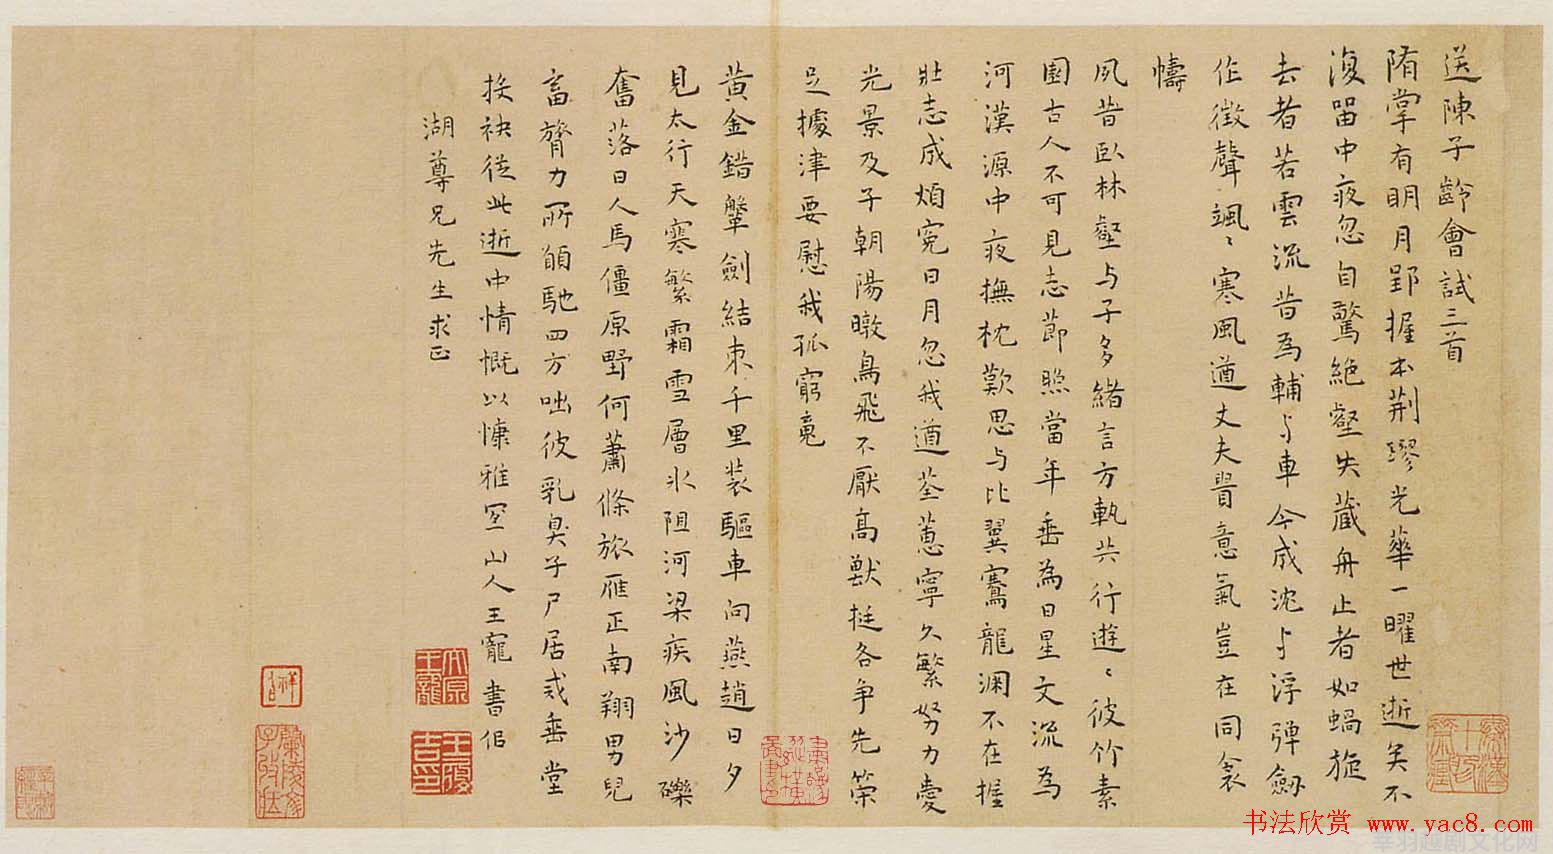 送陳子齡會試三首
隋掌有明月郢握本荆璆光華一曜世逝矣不
復留中夜忽自驚絕壑失藏舟止者如蝸旋
去者若雲流昔為輔与車今成沈与浮弹劔
作徵聲颯〻寒風遒丈夫意氣豈在同衾
幬
夙昔卧林壑与子多緒言方軌共行遊〻彼竹素
園古人不可見志莭照當年垂為日星文流為
河漢源中夜撫枕歎思与比翼鶱龍淵不在握
壯志成煩寃日月忽我遒荃蕙寧久繁努力愛
光景及子朝陽暾鳥飛不厭高獸挺各争先策
足據津要慰我孤窮
黄金錯鞶劍結束千里装驅車向燕趙日夕
見太行天寒繁霜雪層氷阻河梁疾風沙礫
奮落日人馬僵原野何蕭條旅雁正南翔男兒
畜膂力所願馳四方咄彼乳臭子尸居戒垂堂
接袂從此逝中情慨以慷雅宜山人王寵書侣
湖尊兄先生求正
太原王寵
王履吉印
书法欣赏 www.yac8.com